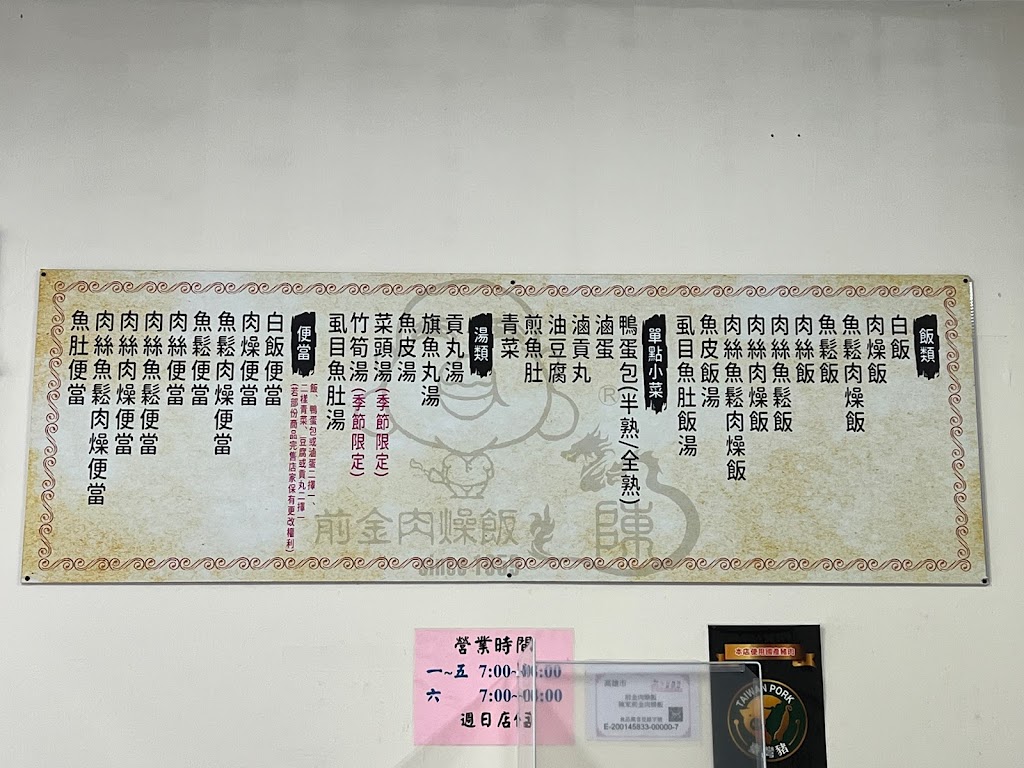 飯類
白飯
肉燥飯
魚鬆肉燥飯
魚鬆飯
肉絲飯
肉絲魚鬆飯
肉絲肉燥飯
肉絲魚鬆肉燥飯
魚皮飯湯
虱目魚肚飯湯
單點小菜
鴨蛋包(半熟/全熟)
滷蛋
滷貢丸
油豆腐
煎魚肚
青菜
湯類
貢丸湯
旗魚丸湯
魚皮湯
菜頭湯(季節限定)
竹筍湯(季節限定)
虱目魚肚湯
便當
飯、鴨蛋包或滷蛋二擇一、
二樣青菜、豆腐或貢丸二擇一
(若部份商品完售店家保有更改權利)
白飯便當
肉燥便當
魚鬆肉燥便當
魚鬆便當
肉絲便當
肉絲魚鬆便當
肉絲肉燥便當
肉絲魚鬆肉燥便當
魚肚便當
®
陳
前金肉燥飯
since 1959
營業時間
一~五 7:00~
六 7:00~
週日店休
高雄市
前金肉燥飯
E-200145833-00000-7
本店使用國產豬肉
TAIWAN PORK
臺灣豬